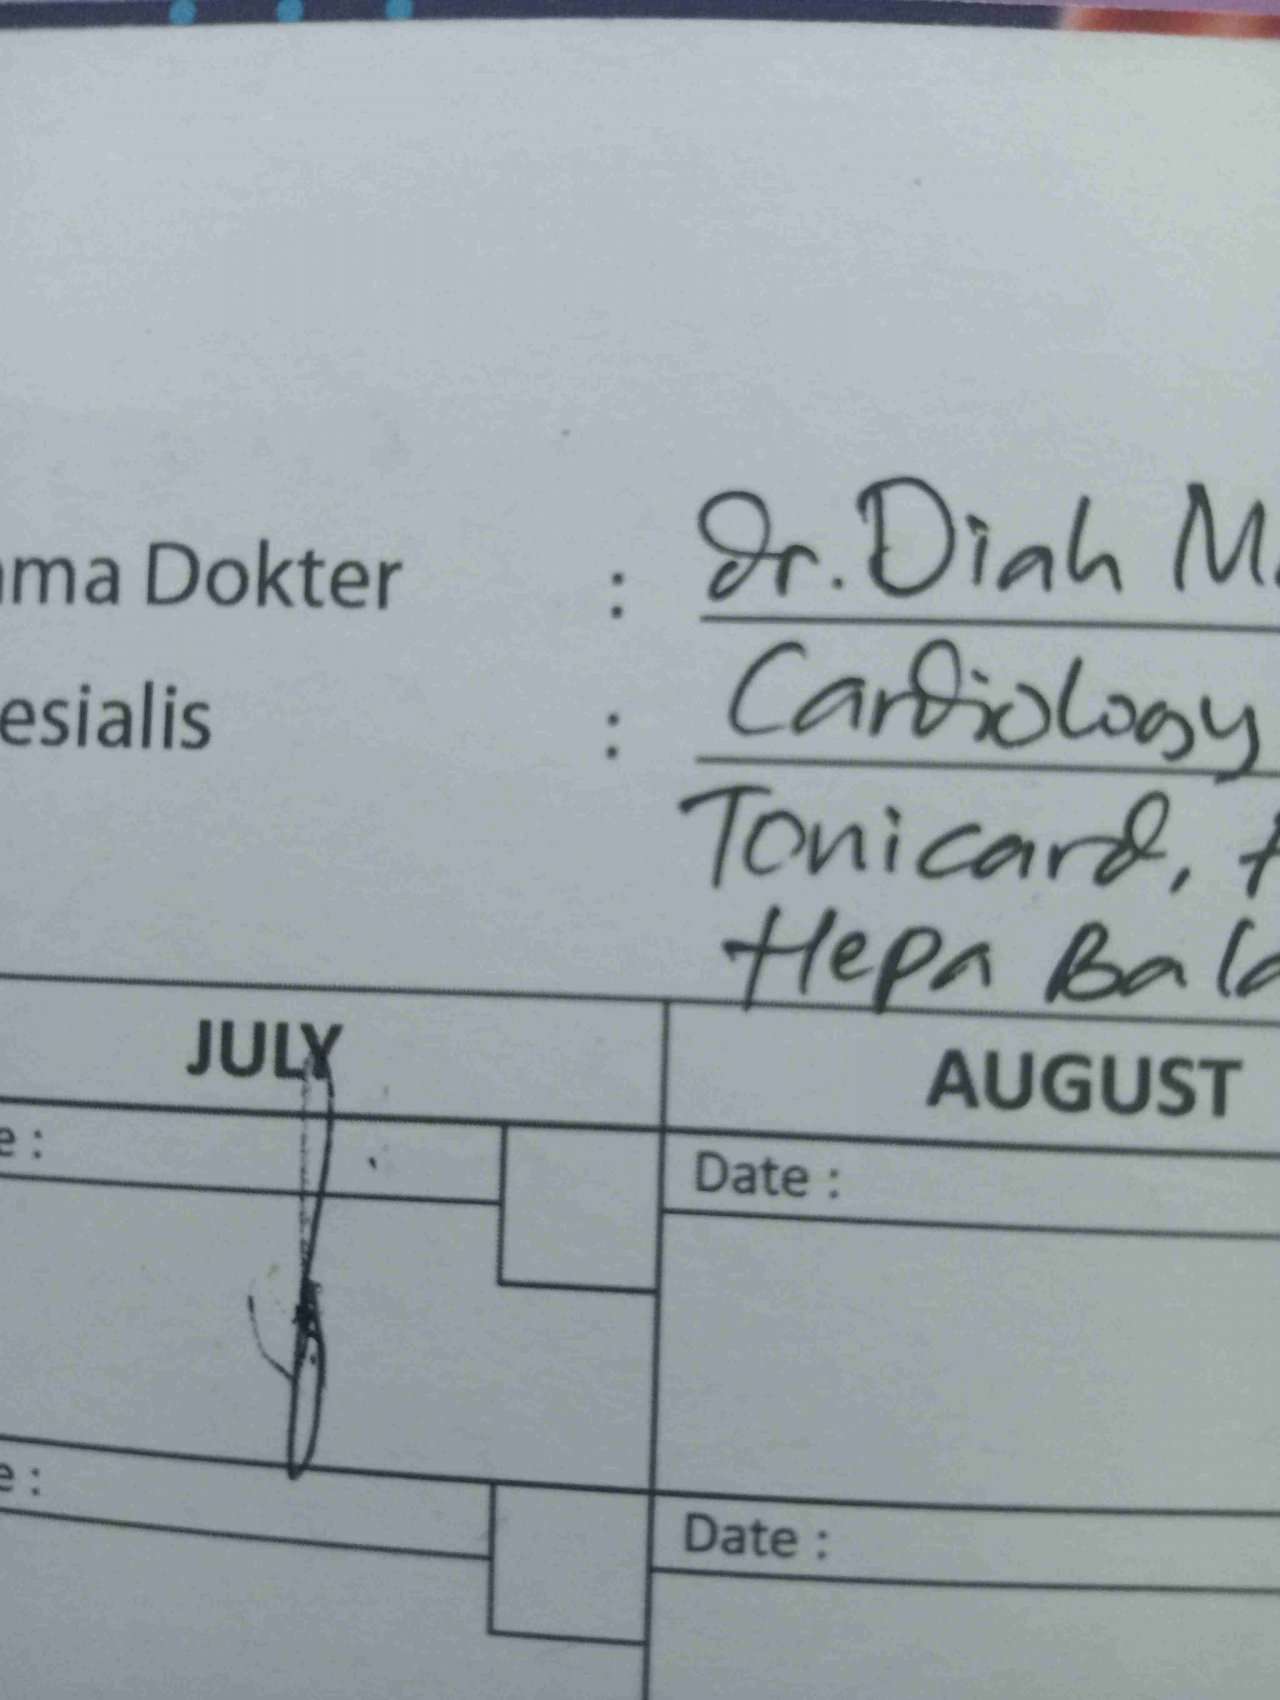 ama Dokter : dr. Diah M
esialis : Cardiology
Tonicard,
Hepa Bala
JULY AUGUST
e : Date :
e : Date :